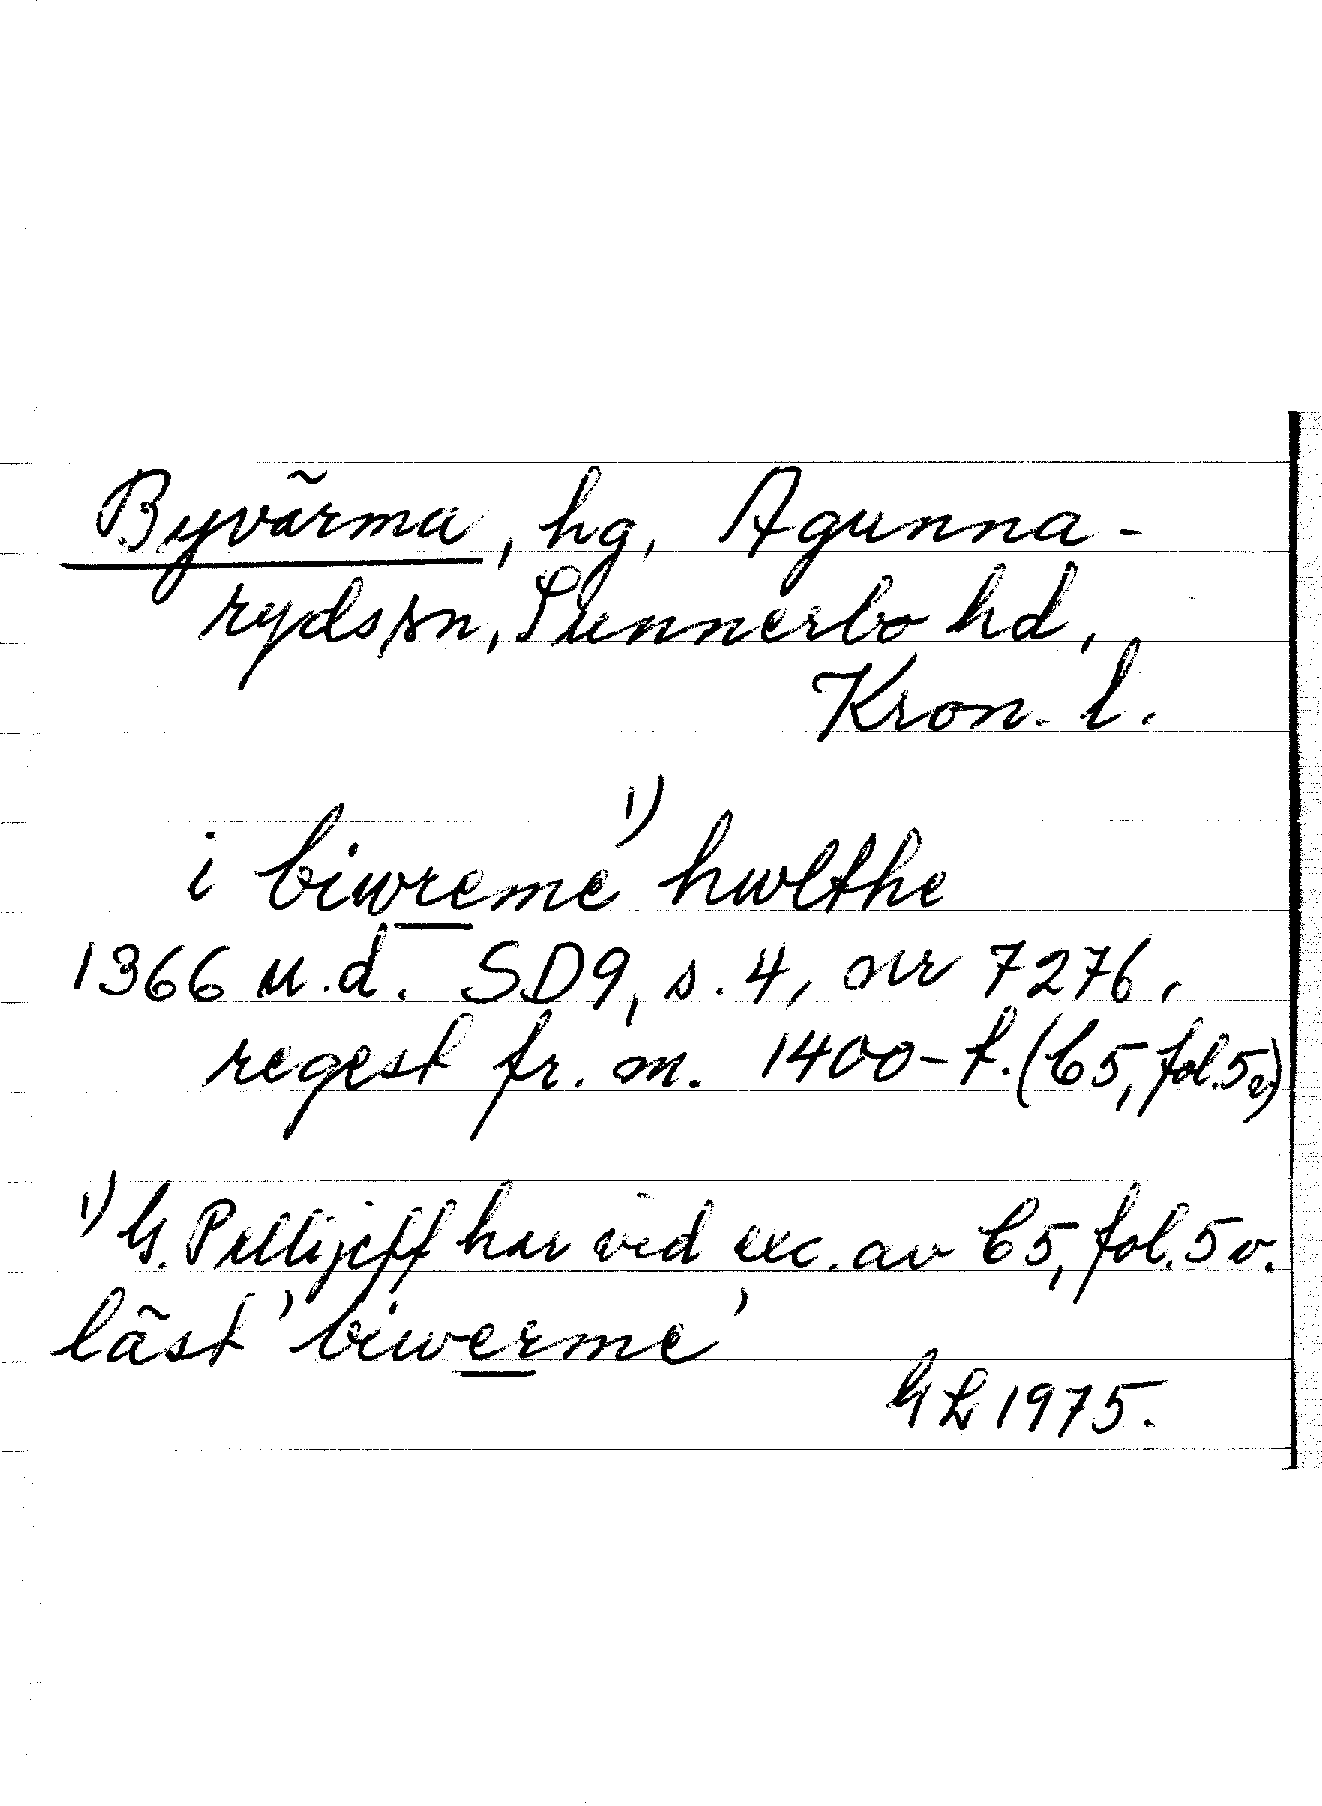 Byvärma, hg, Agunna-
ryds sn, Sunnerbo hd,
Kron. l.
i biwreme ¹) hwlthe
1366 u.d. SD9, s. 4, nr 7276,
regest fr. m. 1400-t. (C5, fol. 5v)
¹) G. Pellijeff har vid exc. av C5, fol. 5v.
läst 'biwerme'
GL 1975.